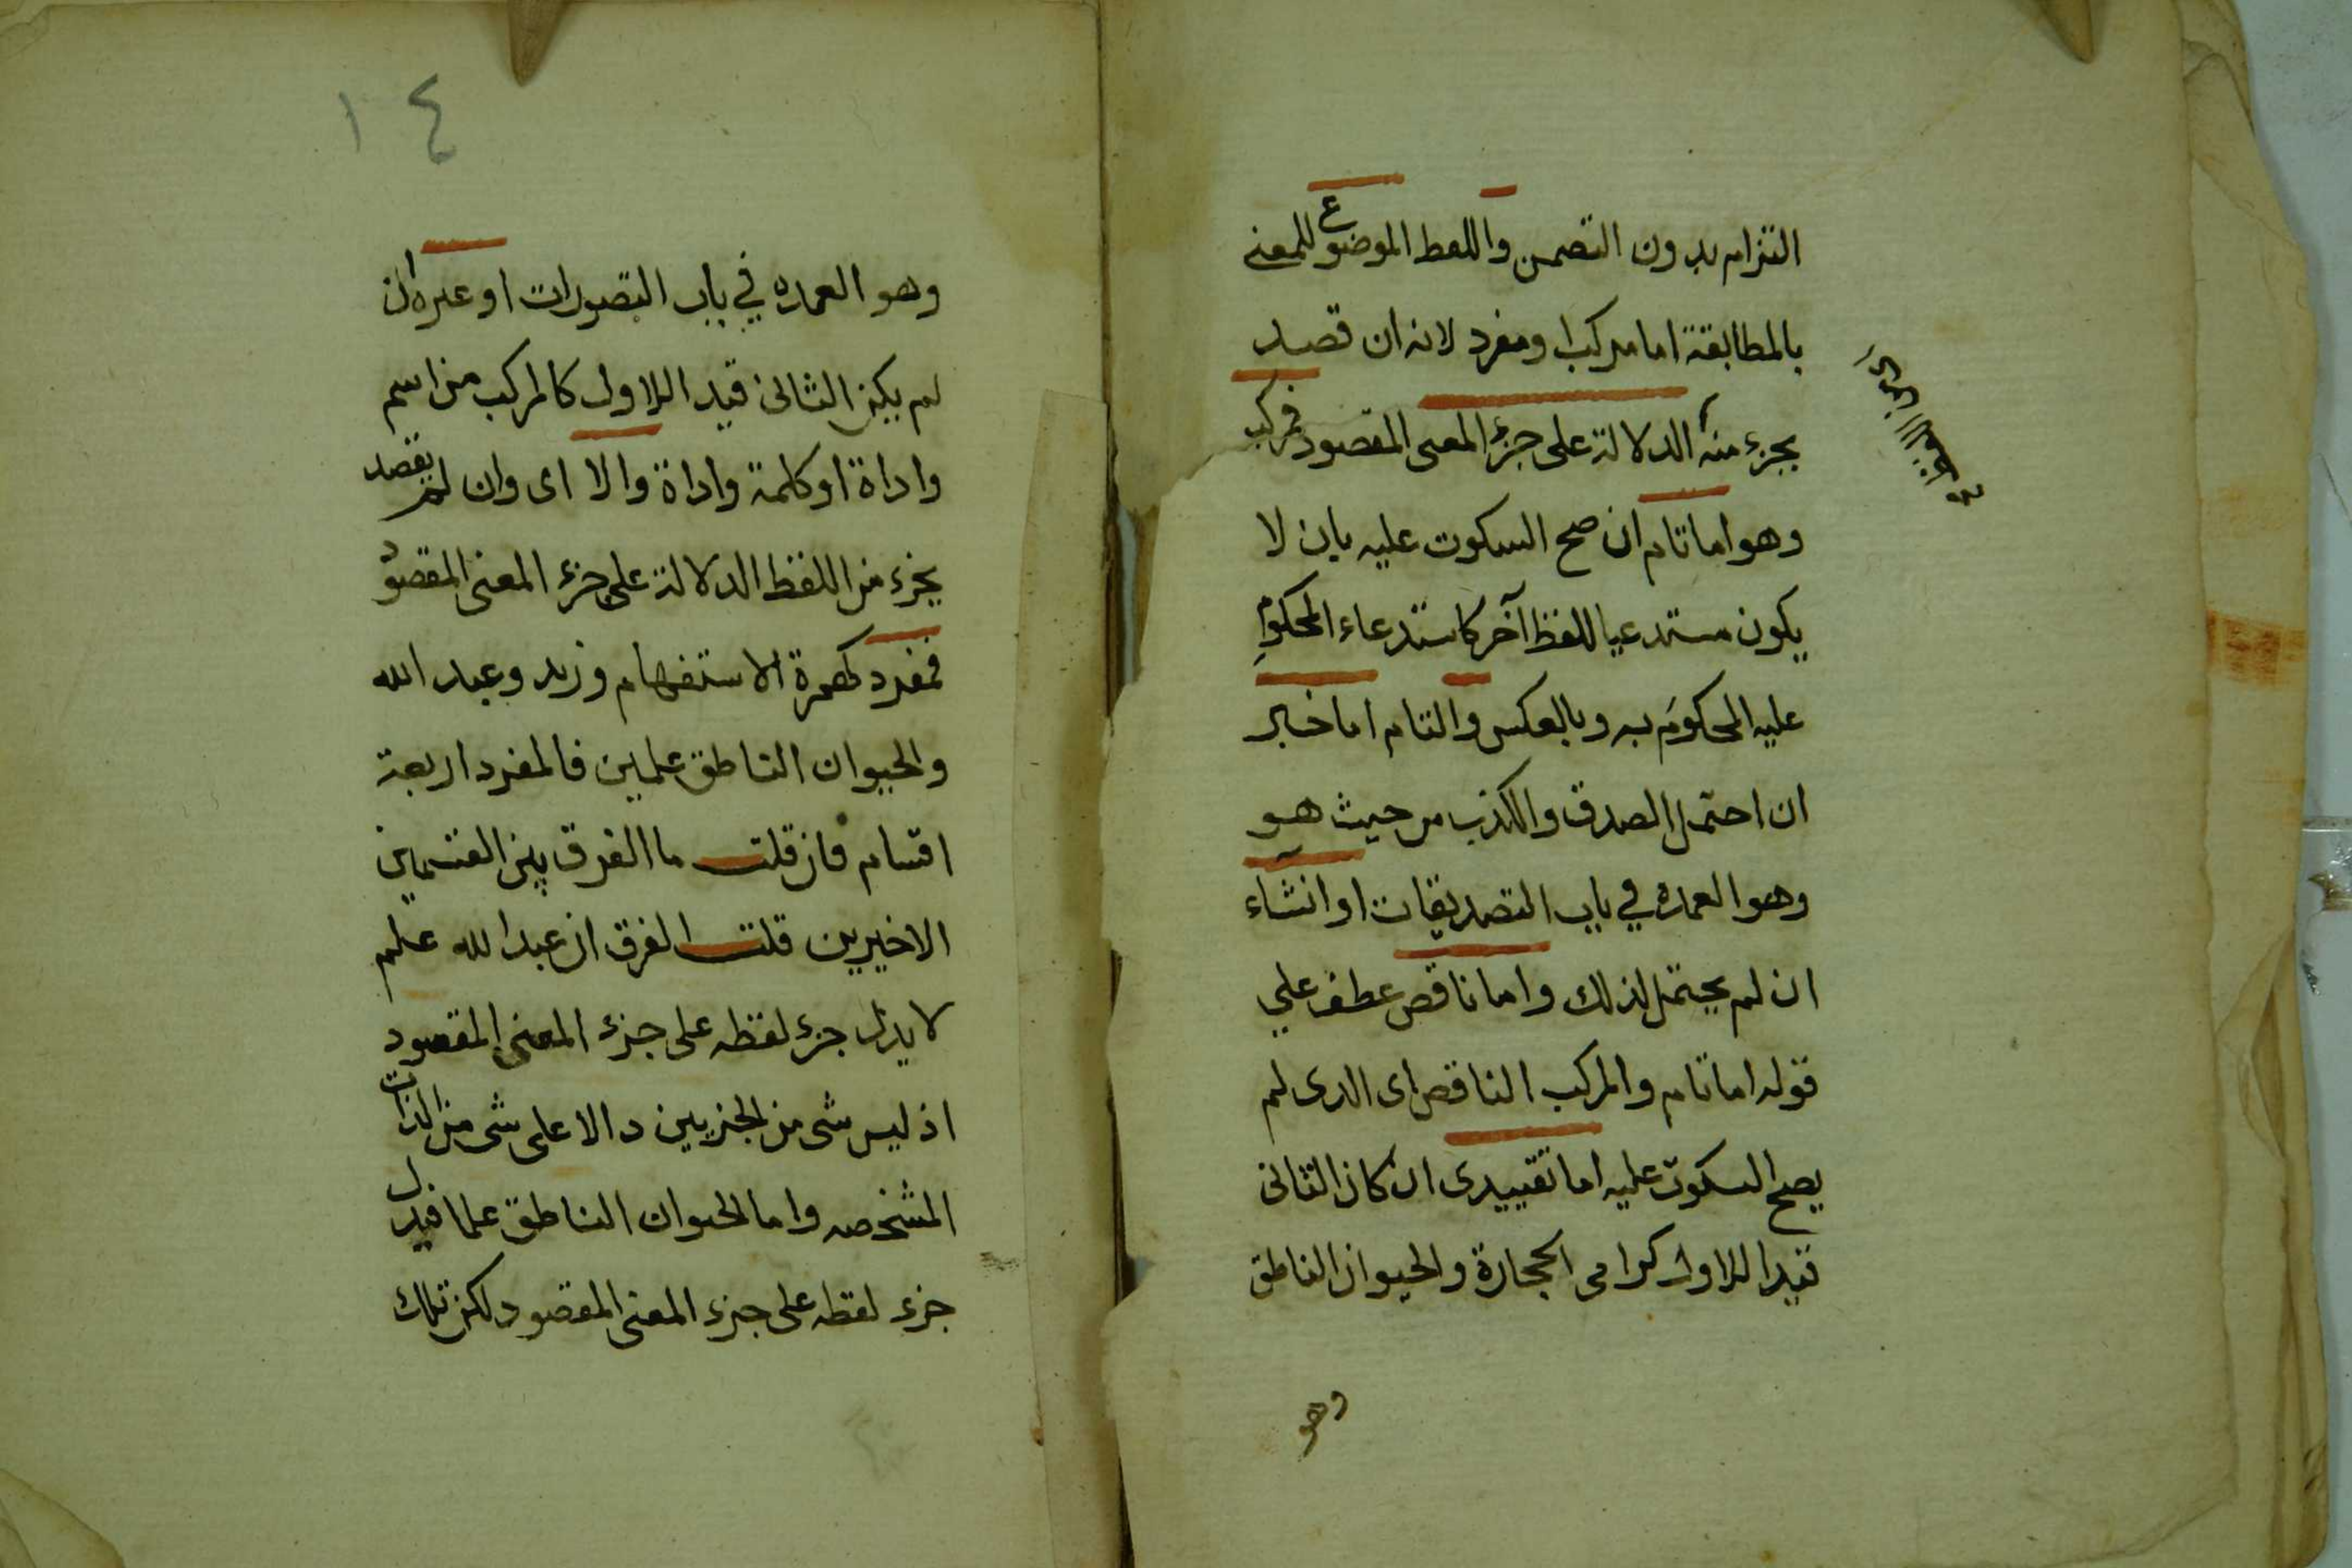 التزام بدون التضمن واللفظ الموضوع للمعنى
بالمطابقة اما مركب او مفرد لانه ان قصد
بجزء منه الدلالة على جزء المعنى المقصود فمركب
وهو اما تام ان صح السكوت عليه بان لا
يكون مستدعيا للفظ آخر كاستدعاء المحكوم
عليه المحكوم به وبالعكس والتام اما خبر
ان احتمل الصدق والكذب من حيث هو
وهو العمده في باب التصديقات او انشاء
ان لم يحتمل لذلك واما ناقص عطف علي
قوله اما تام والمركب الناقص اى الدى لم
يصح السكوت عليه اما تقييدى ان كان الثانى
قيدا للاول كرامى الحجارة والحيوان الناطق
وهو
١٤
وهو العمده في باب التصورات او غيره ان
لم يكن الثانى قيد اللاول كالمركب من اسم
واداة او كلمة واداة والا اى وان لم يقصد
بجزء من اللفظ الدلالة على جزء المعنى المقصود
فمفرد كهمزة الاستفهام وزيد وعبد الله
والحيوان الناطق علمين فالمفرد اربعة
اقسام فان قلت ما الفرق بين القسمين
الاخيرين قلت الفرق ان عبد الله علم
لا يدل جزء لفظه على جزء المعنى المقصود
اذ ليس شى من الجزيين دالا على شى من الذات
المشخصه واما الحيوان الناطق علما فيدل
جزء لفظه على جزء المعنى المقصود لكن تلك